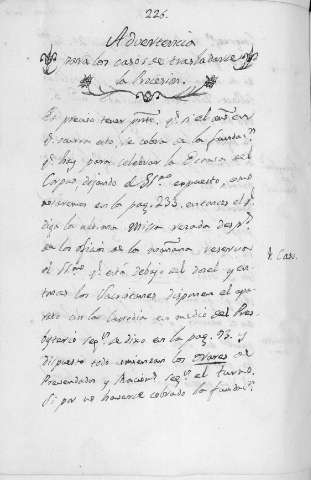 226.
Advertencia
para los casos de trasladarse
la Procesion.
Es preciso tener pres.te q.e si el año en
q.e ocurra esto, se cobra de la fundaz.n
q.e hay para celebrar la Octava del
Corpus, dejando el SS.mo expuesto, como
notaremos en la pag. 233, entonces el q.e
diga la ultima Misa rezada desp.s
de los oficios de la mañana, reserva
el SS.mo q.e está debajo del dosel y en-
tre los Sacristanes disponen el apa-
rato en la Custodia en medio del Pres
byterio seg.n se dixo en la pag. 93. y
dispuesto todo comienzan los
Prevendados y Racion.s seg.n el turno.
Si por no haverse cobrado la fundac.n
1.r Caso.